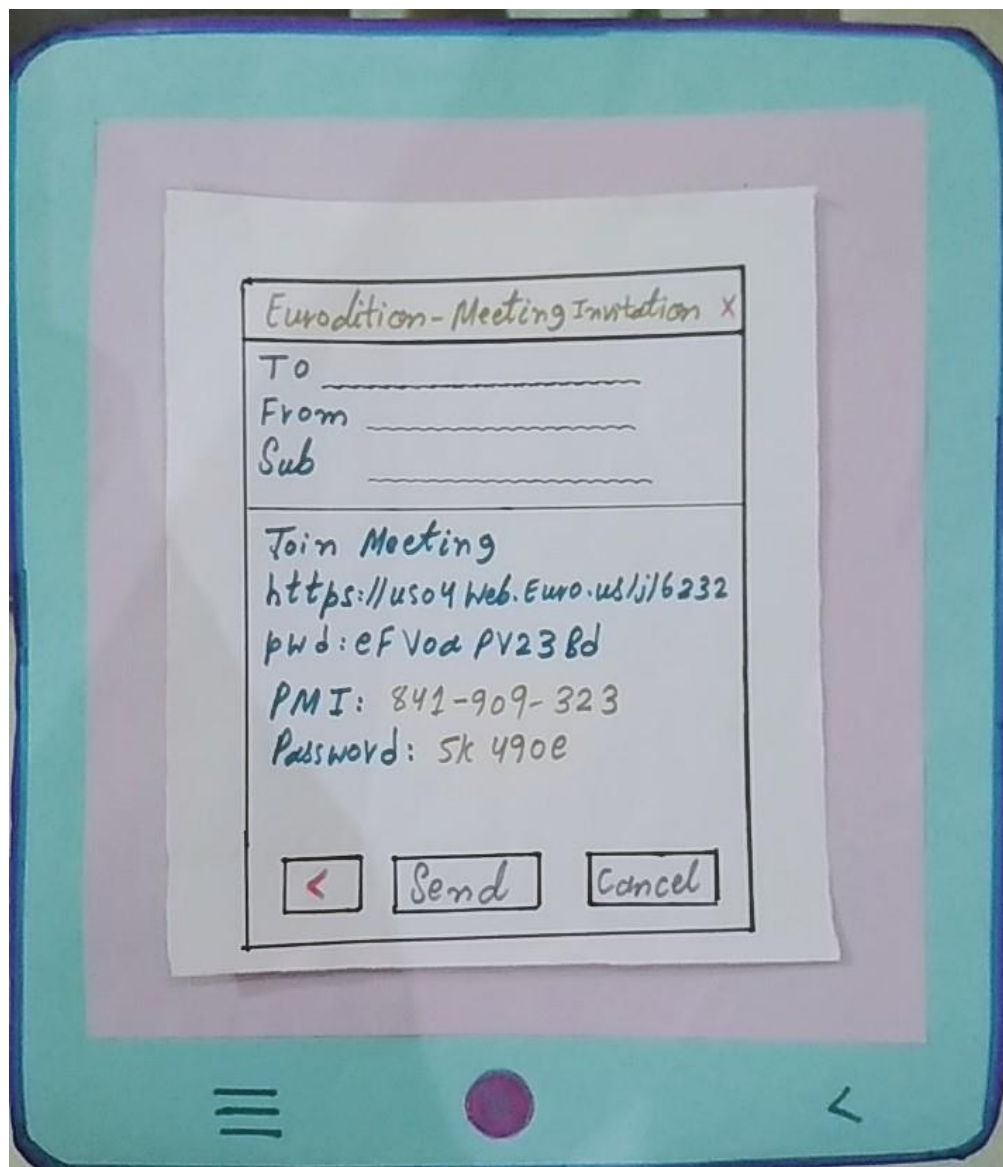 Eurodition-Meeting Invitation X
To
From
Sub
Join Meeting
https://us04web.Euro.us/j/6232
pwd: eFVoa PV23Bd
PMI: 841-909-323
Password: 5k490e
<
Send
Cancel
<